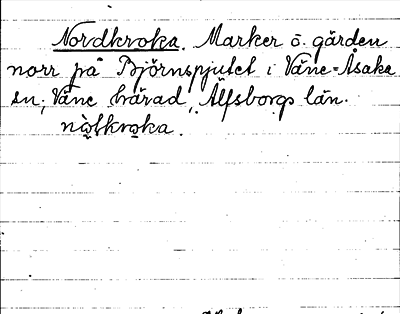 Nordkroka. Marker o. gärden
norr på Björnspjutet i Väne-Åsaka
sn, Väne härad, Älfsborgs län.